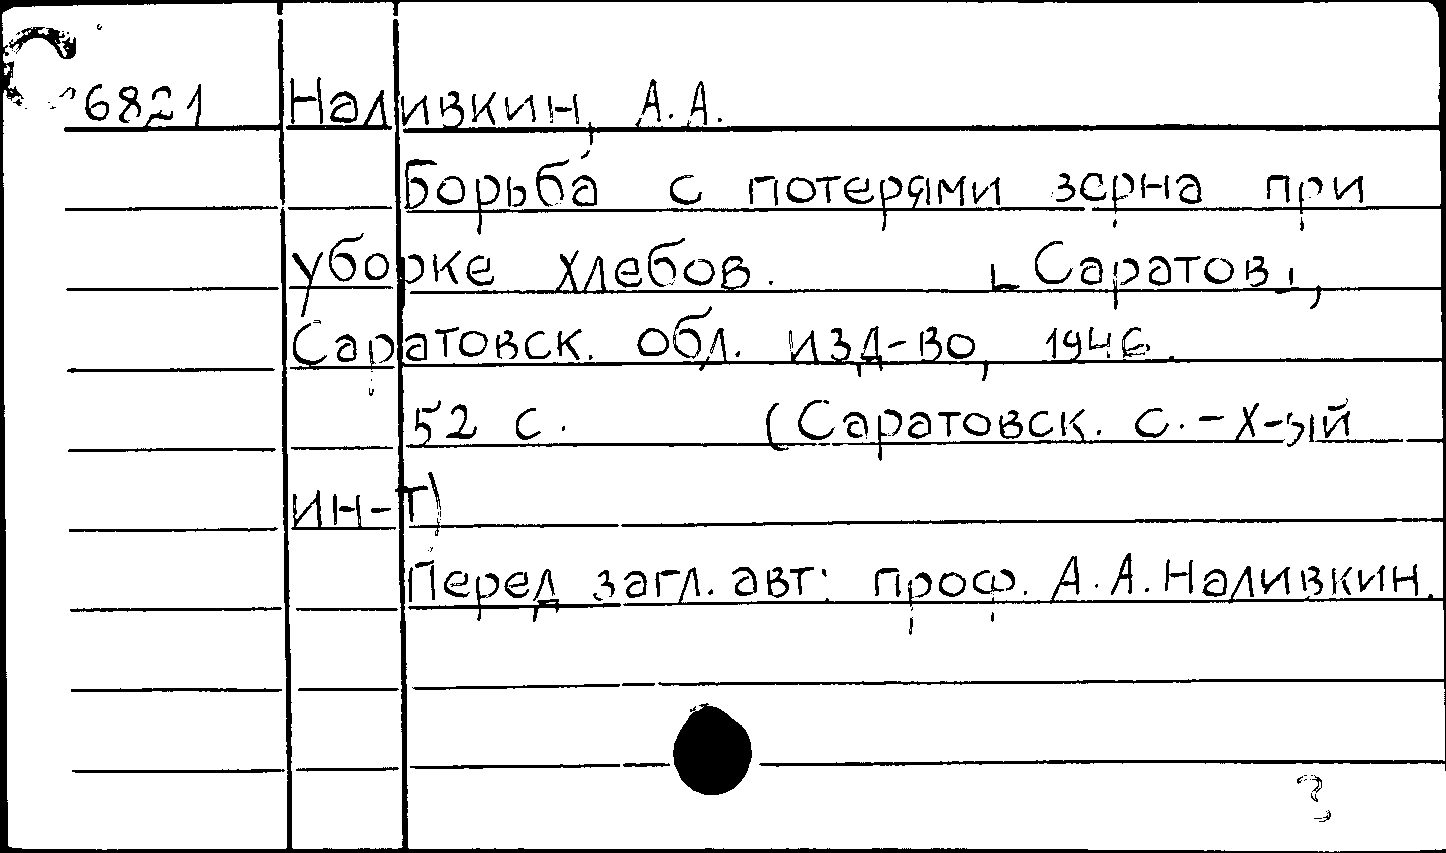 6821 Наливкин, А.А.
Борьба с потерями зерна при
уборке хлебов. [Саратов],
Саратовск. обл. изд-во, 1946.
52 с. (Саратовск. с.-х-ый
ин-т)
Перед загл. авт: проф. А.А.Наливкин.
?